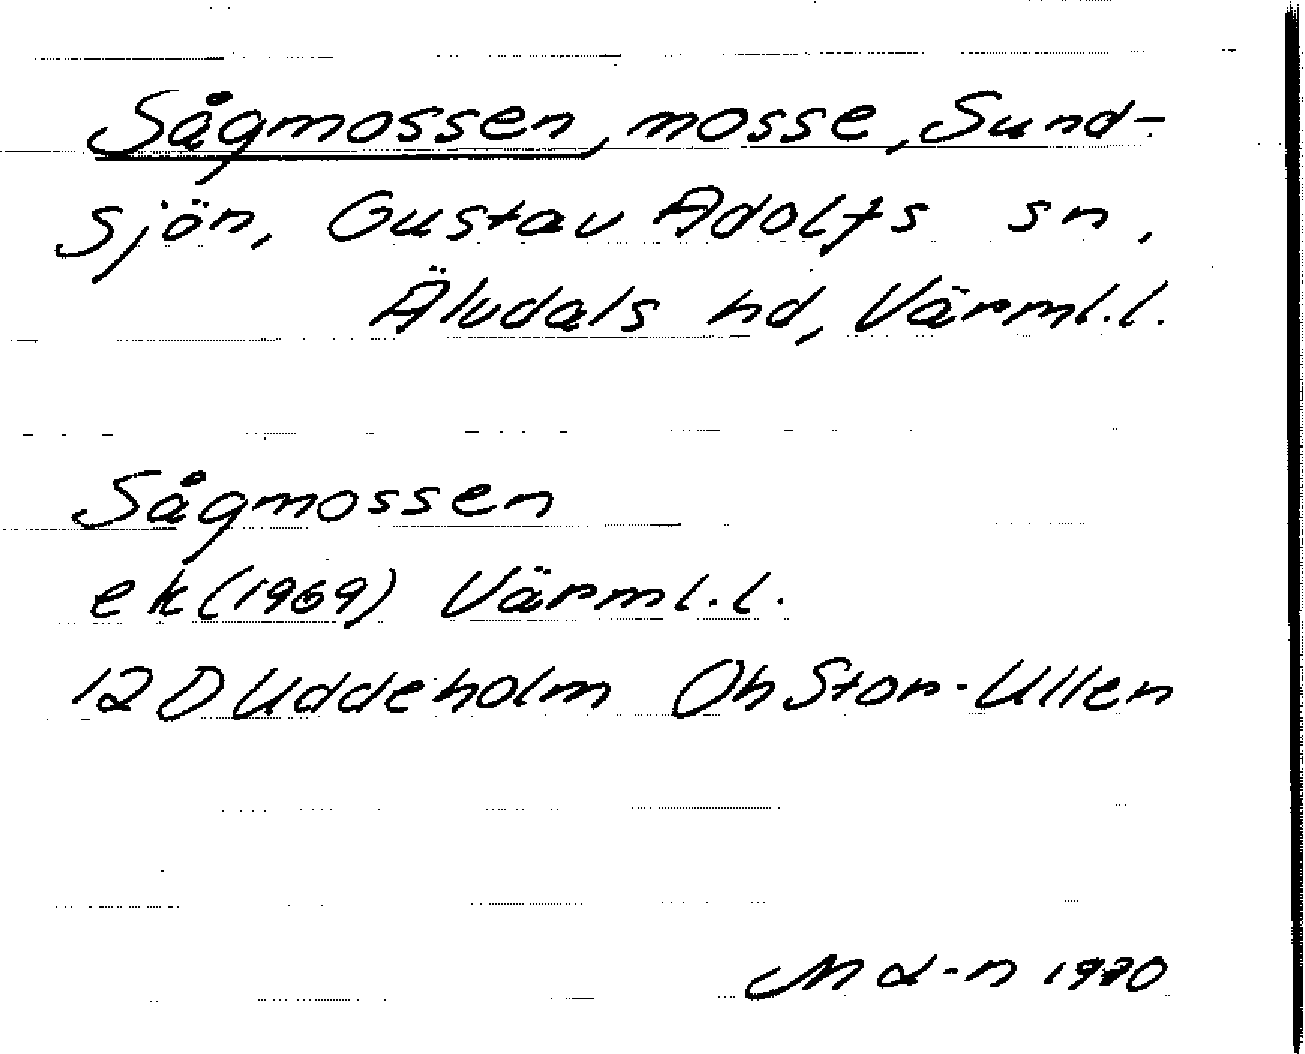 Sågmossen, mosse, Sund-
sjön, Gustav Adolfs sn,
Älvdals hd, Värml.l.
Sågmossen
ek (1969) Värml.l.
12 D Uddeholm Oh Stor-Ullen
1980